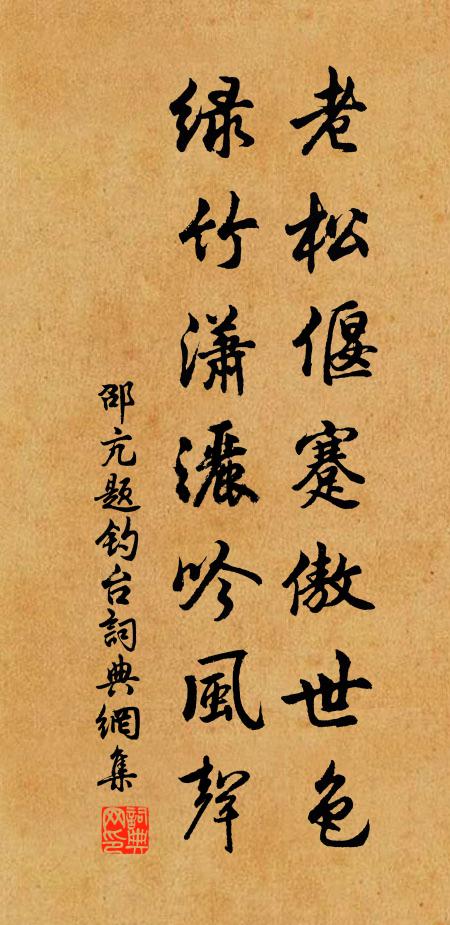 老松偃蹇傲世色
绿竹瀟灑吟風聲
邵亢题钓台詞典網集
詞典网印